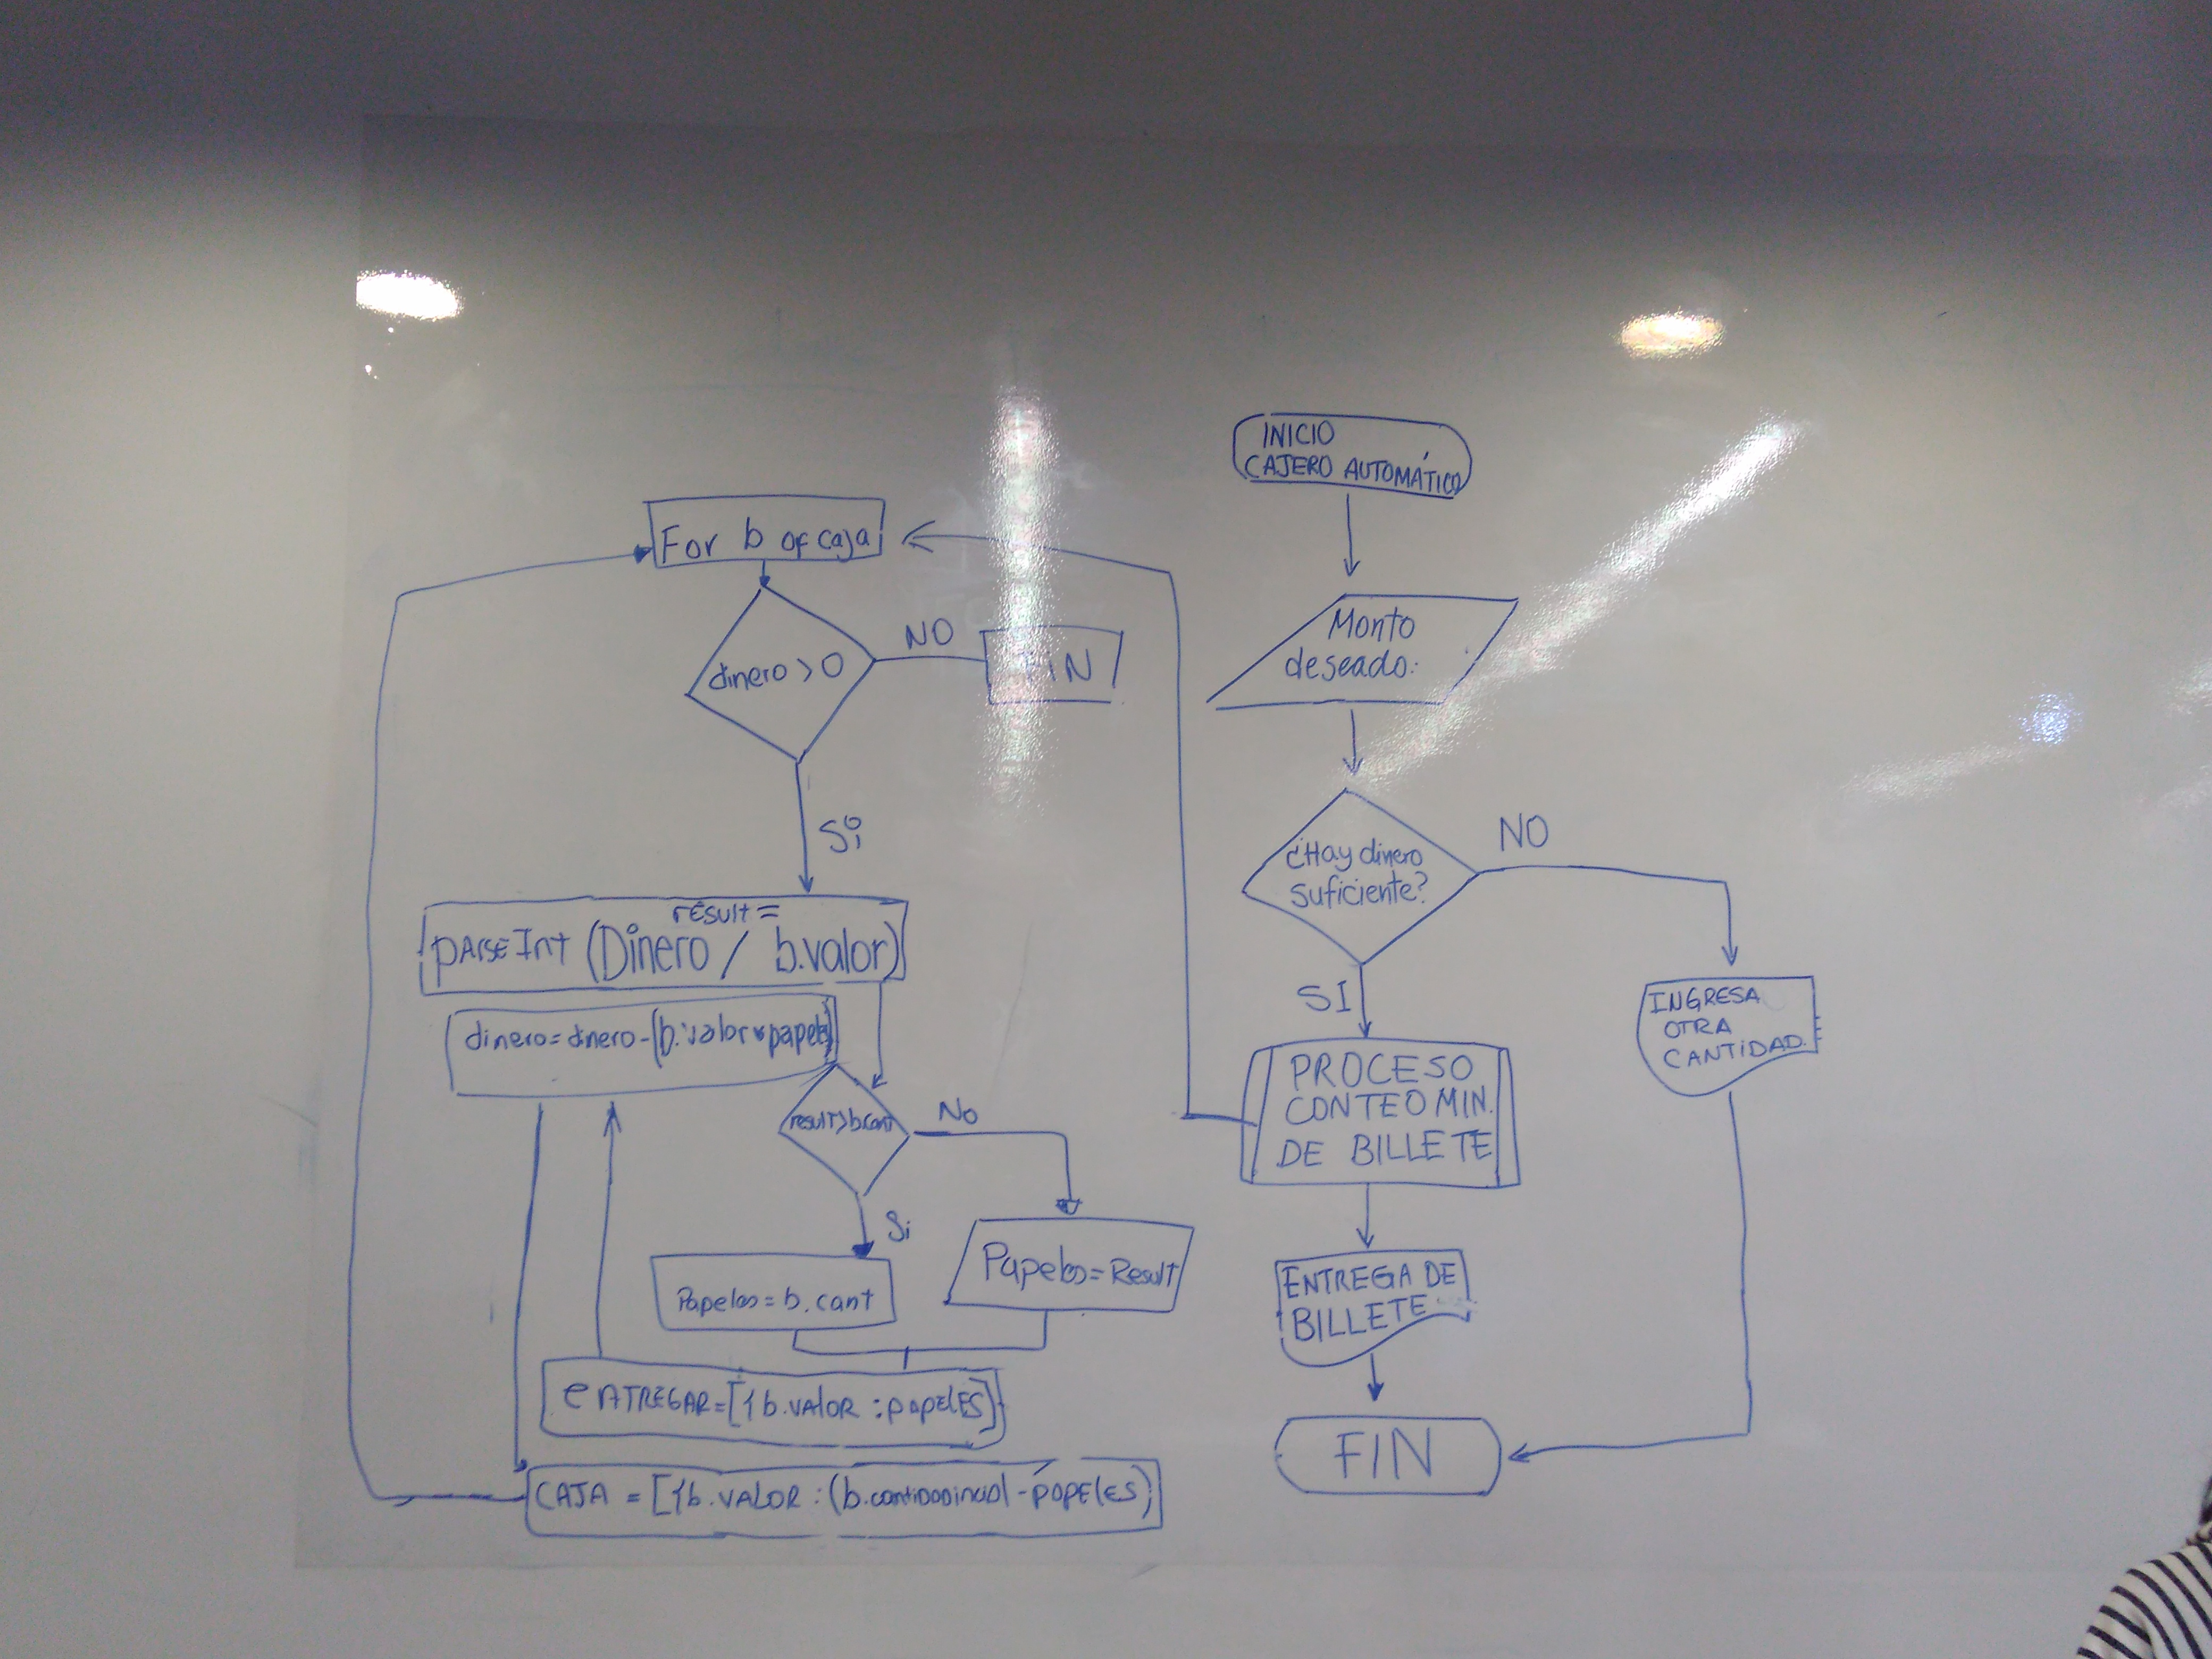 INICIO
CAJERO AUTOMÁTICO
Monto
deseado:
¿Hay dinero
suficiente?
NO
SI
INGRESA
OTRA
CANTIDAD.
PROCESO
CONTEO MIN.
DE BILLETE
ENTREGA DE
BILLETE
FIN
For b of caja
dinero > 0
NO
FIN
Si
result =
parseInt (Dinero / b.valor)
dinero = dinero - (b.valor * papeles)
result > b.cant
No
Si
Papeles = b.cant
Papeles = Result
ENTREGAR = [{b.VALOR : PAPELES}]
CAJA = [{b.VALOR : (b.cantidadinicial - PAPELES)